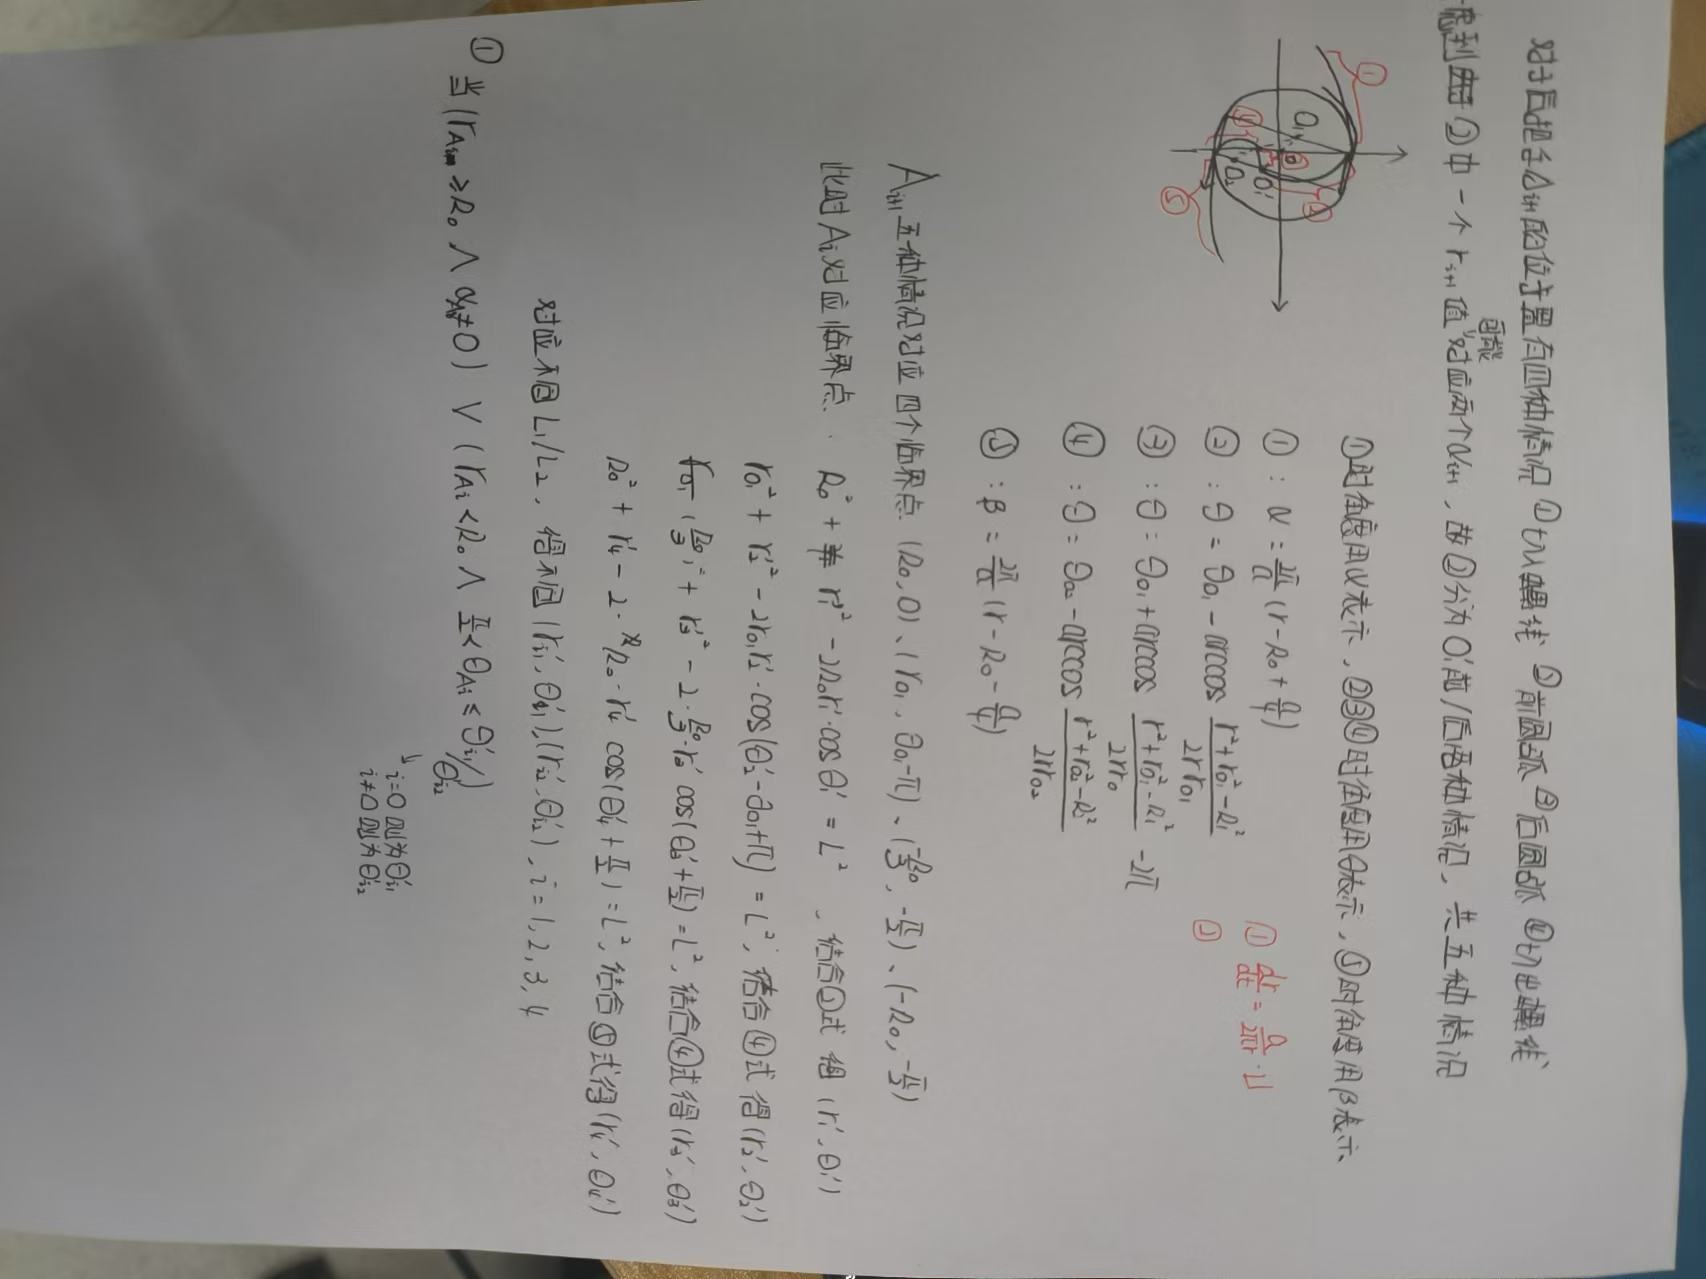 对于后把手Ai+1的位置有四种情况 ①切入螺线 ②前圆弧 ③后圆弧 ④切出螺线
虑到 ②中一个ri+1值可能对应两个αi+1,故②分为O₁'前/后两种情况,共五种情况
①时角度用α表示,②③④时角度用θ表示,⑤时角度用β表示.
①: α = 2π/a (r - R₀ + a/4)
②: θ = θo₁ - arccos (r² + ro₁² - R₁²)/(2rro₁)
③: θ = θo₁ + arccos (r² + ro₁² - R₁²)/(2rro) - 2π
④: θ = θo₂ - arccos (r² + ro₂² - R²)/(2rro₂)
⑤: β = 2π/a (r - R₀ - a/4)
① dr/dt = a/2πr · v
②
① ② ④ ⑤
O₁ O₁' O₂
Ai+1 五种情况对应四个临界点 (R₀, 0)、(ro₁, θo₁-π)、(R₀/3, -π/2)、(-R₀, -π/2)
此时Ai对应临界点. R₀² + r₁'² - 2R₀r₁'·cosθ₁' = L², 结合②式得 (r₁', θ₁')
ro₁² + r₂'² - 2ro₁r₂'·cos(θ₂' - θo₁ + π) = L², 结合④式得 (r₂', θ₂')
(R₀/3)² + r₃'² - 2·R₀/3·r₃' cos(θ₃' + π/2) = L², 结合④式得 (r₃', θ₃')
R₀² + r₄' - 2·R₀·r₄' cos(θ₄' + π/2) = L², 结合⑤式得 (r₄', θ₄')
对应不同L₁/L₂, 得不同 (ri₁', θi₁'), (ri₂', θi₂'), i = 1, 2, 3, 4
① 当 (rAi ≥ R₀ ∧ αAi ≠ 0) ∨ (rAi < R₀ ∧ π/2 < θAi ≤ θi₁'/θi₂')
i=0 则为θi₁'
i≠0 则为θi₂'